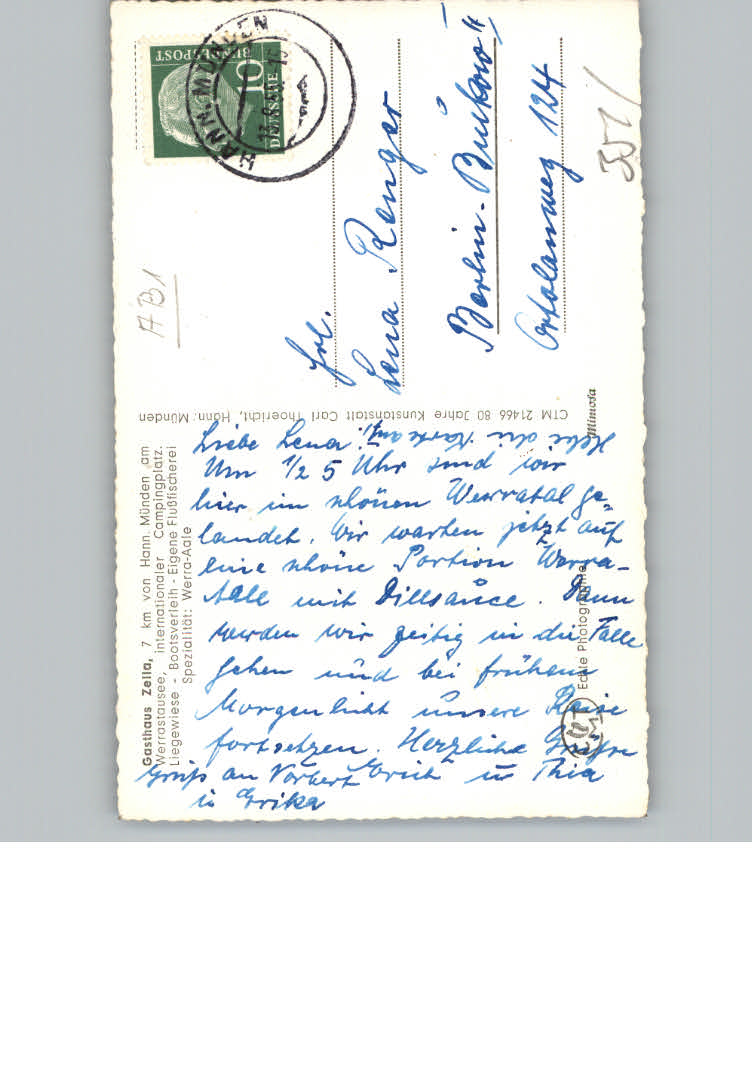 Gasthaus Zella, 7 km von Hann. Münden am
Werrastausee, internationaler Campingplatz.
Liegewiese - Bootsverleih - Eigene Flußfischerei
Spezialität: Werra-Aale
Liebe Lena!
Hebe die Karte auf!
Um 1/2 5 Uhr sind wir
hier im schönen Werratal ge-
landet. Wir warten jetzt auf
eine schöne Portion Werra-
Aale mit Dillsauce. Dann
werden wir zeitig in die Falle
gehen und bei frühem
Morgenlicht unsere Reise
fortsetzen. Herzliche Grüße
Gruß an Norbert Erich u Thea
u Erika
CTM 21466 80 Jahre Kunstanstalt Carl Thoericht, Hann. Münden
Mimosa
Echte Photographie
HANN. MÜNDEN
DEUTSCHE BUNDESPOST
10
Frl.
Lena Renger
Berlin-Buckow II
Ortolanweg 124
AB1